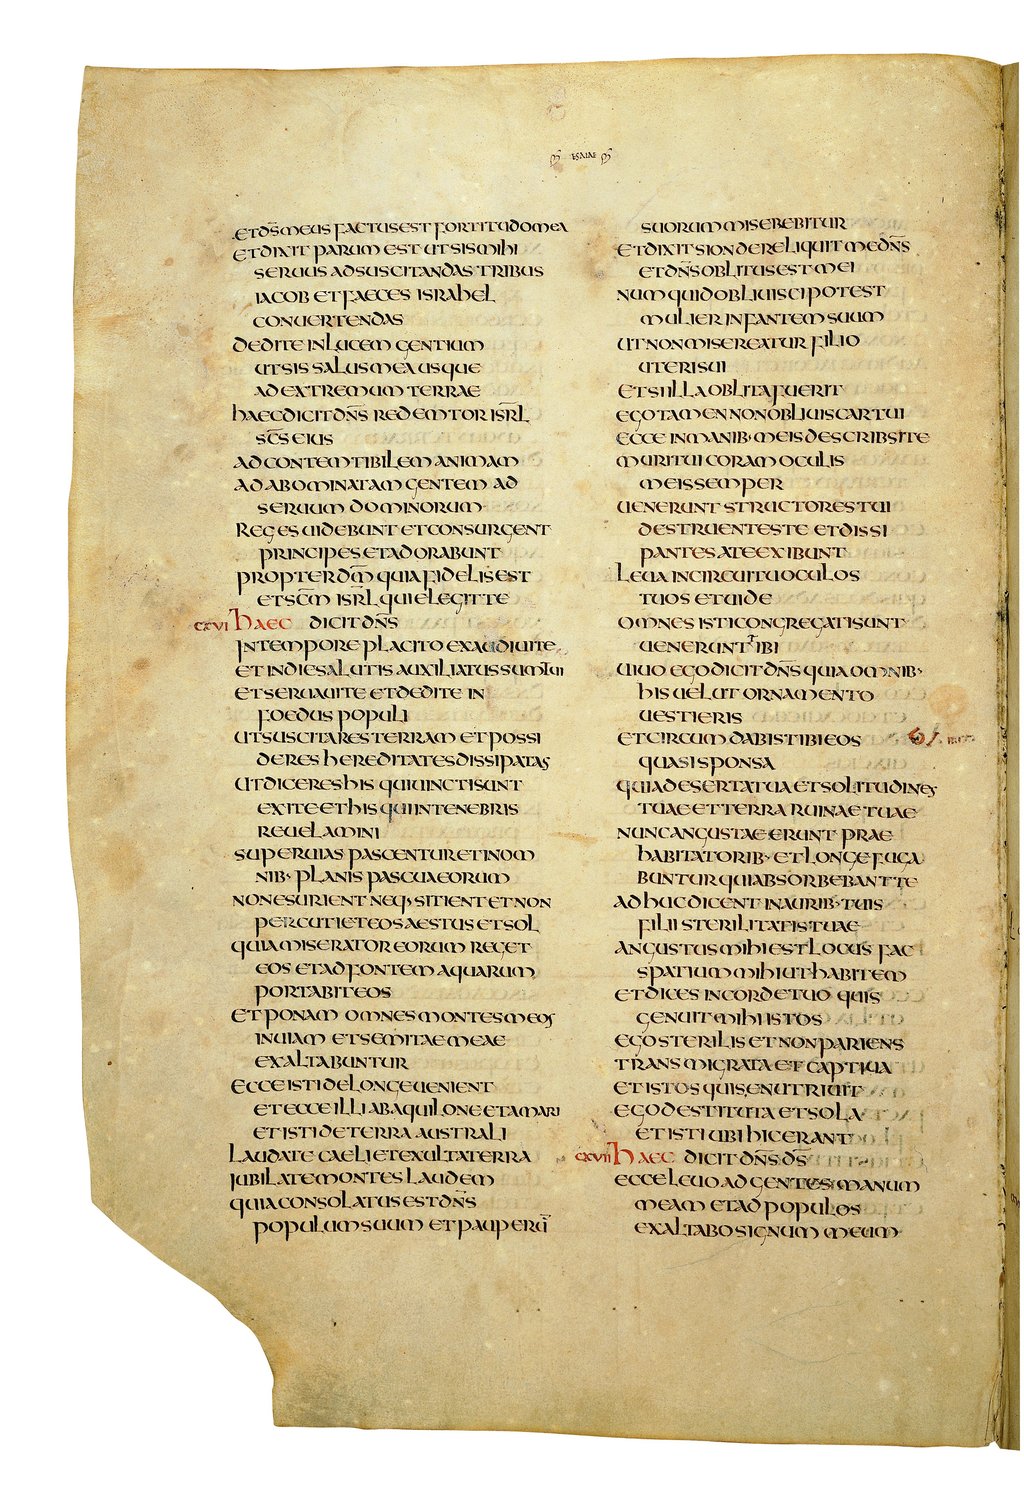 ESAIAE
ET DS̄ MEUS FACTUS EST FORTITUDO MEA
ET DIXIT PARUM EST UT SIS MIHI
SERUUS AD SUSCITANDAS TRIBUS
IACOB ET FAECES ISRAHEL
CONUERTENDAS
DEDI TE IN LUCEM GENTIUM
UT SIS SALUS MEA USQUE
AD EXTREMUM TERRAE
HAEC DICIT DN̄S REDEMTOR ISRL̄
SC̄S EIUS
AD CONTEMTIBILEM ANIMAM
AD ABOMINATAM GENTEM AD
SERUUM DOMINORUM
REGES UIDEBUNT ET CONSURGENT
PRINCIPES ET ADORABUNT
PROPTER DN̄M QUIA FIDELIS EST
ET SC̄M ISRL̄ QUI ELEGIT TE
CXVI HAEC DICIT DN̄S
IN TEMPORE PLACITO EXAUDIUI TE
ET IN DIE SALUTIS AUXILIATUS SUM TUI
ET SERUAUI TE ET DEDI TE IN
FOEDUS POPULI
UT SUSCITARES TERRAM ET POSSI
DERES HEREDITATES DISSIPATAS
UT DICERES HIS QUI UINCTI SUNT
EXITE ET HIS QUI IN TENEBRIS
REUELAMINI
SUPER UIAS PASCENTUR ET IN OM
NIB· PLANIS PASCUA EORUM
NON ESURIENT NEQ· SITIENT ET NON
PERCUTIET EOS AESTUS ET SOL
QUIA MISERATOR EORUM REGET
EOS ET AD FONTEM AQUARUM
PORTABIT EOS
ET PONAM OMNES MONTES MEOS
IN UIAM ET SEMITAE MEAE
EXALTABUNTUR
ECCE ISTI DE LONGE UENIENT
ET ECCE ILLI AB AQUILONE ET AMARI
ET ISTI DE TERRA AUSTRALI
LAUDATE CAELI ET EXULTA TERRA
IUBILATE MONTES LAUDEM
QUIA CONSOLATUS EST DN̄S
POPULUM SUUM ET PAUPERŪ
SUORUM MISEREBITUR
ET DIXIT SION DERELIQUIT ME DN̄S
ET DN̄S OBLITUS EST MEI
NUMQUID OBLIUISCI POTEST
MULIER INFANTEM SUUM
UT NON MISEREATUR FILIO
UTERI SUI
ET SI ILLA OBLITA FUERIT
EGO TAMEN NON OBLIUISCAR TUI
ECCE IN MANIB· MEIS DESCRIBSI TE
MURI TUI CORAM OCULIS
MEIS SEMPER
UENERUNT STRUCTORES TUI
DESTRUENTES TE ET DISSI
PANTES A TE EXIBUNT
LEUA IN CIRCUITU OCULOS
TUOS ET UIDE
OMNES ISTI CONGREGATI SUNT
UENERUNT TIBI
UIUO EGO DICIT DN̄S QUIA OMNIB·
HIS UELUT ORNAMENTO
UESTIERIS
ET CIRCUMDABIS TIBI EOS
QUASI SPONSA
QUIA DESERTA TUA ET SOLITUDINES
TUAE ET TERRA RUINAE TUAE
NUNC ANGUSTAE ERUNT PRAE
HABITATORIB· ET LONGE FUGA
BUNTUR QUI ABSORBEBANT TE
ADHUC DICENT IN AURIB· TUIS
FILII STERILITATIS TUAE
ANGUSTUS MIHI EST LOCUS FAC
SPATIUM MIHI UT HABITEM
ET DICES IN CORDE TUO QUIS
GENUIT MIHI ISTOS
EGO STERILIS ET NON PARIENS
TRANSMIGRATA ET CAPTIUA
ET ISTOS QUIS ENUTRIUIT
EGO DESTITUTA ET SOLA
ET ISTI UBI HIC ERANT
CXVII HAEC DICIT DN̄S DS̄
ECCE LEUO AD GENTES MANUM
MEAM ET AD POPULOS
EXALTABO SIGNUM MEUM